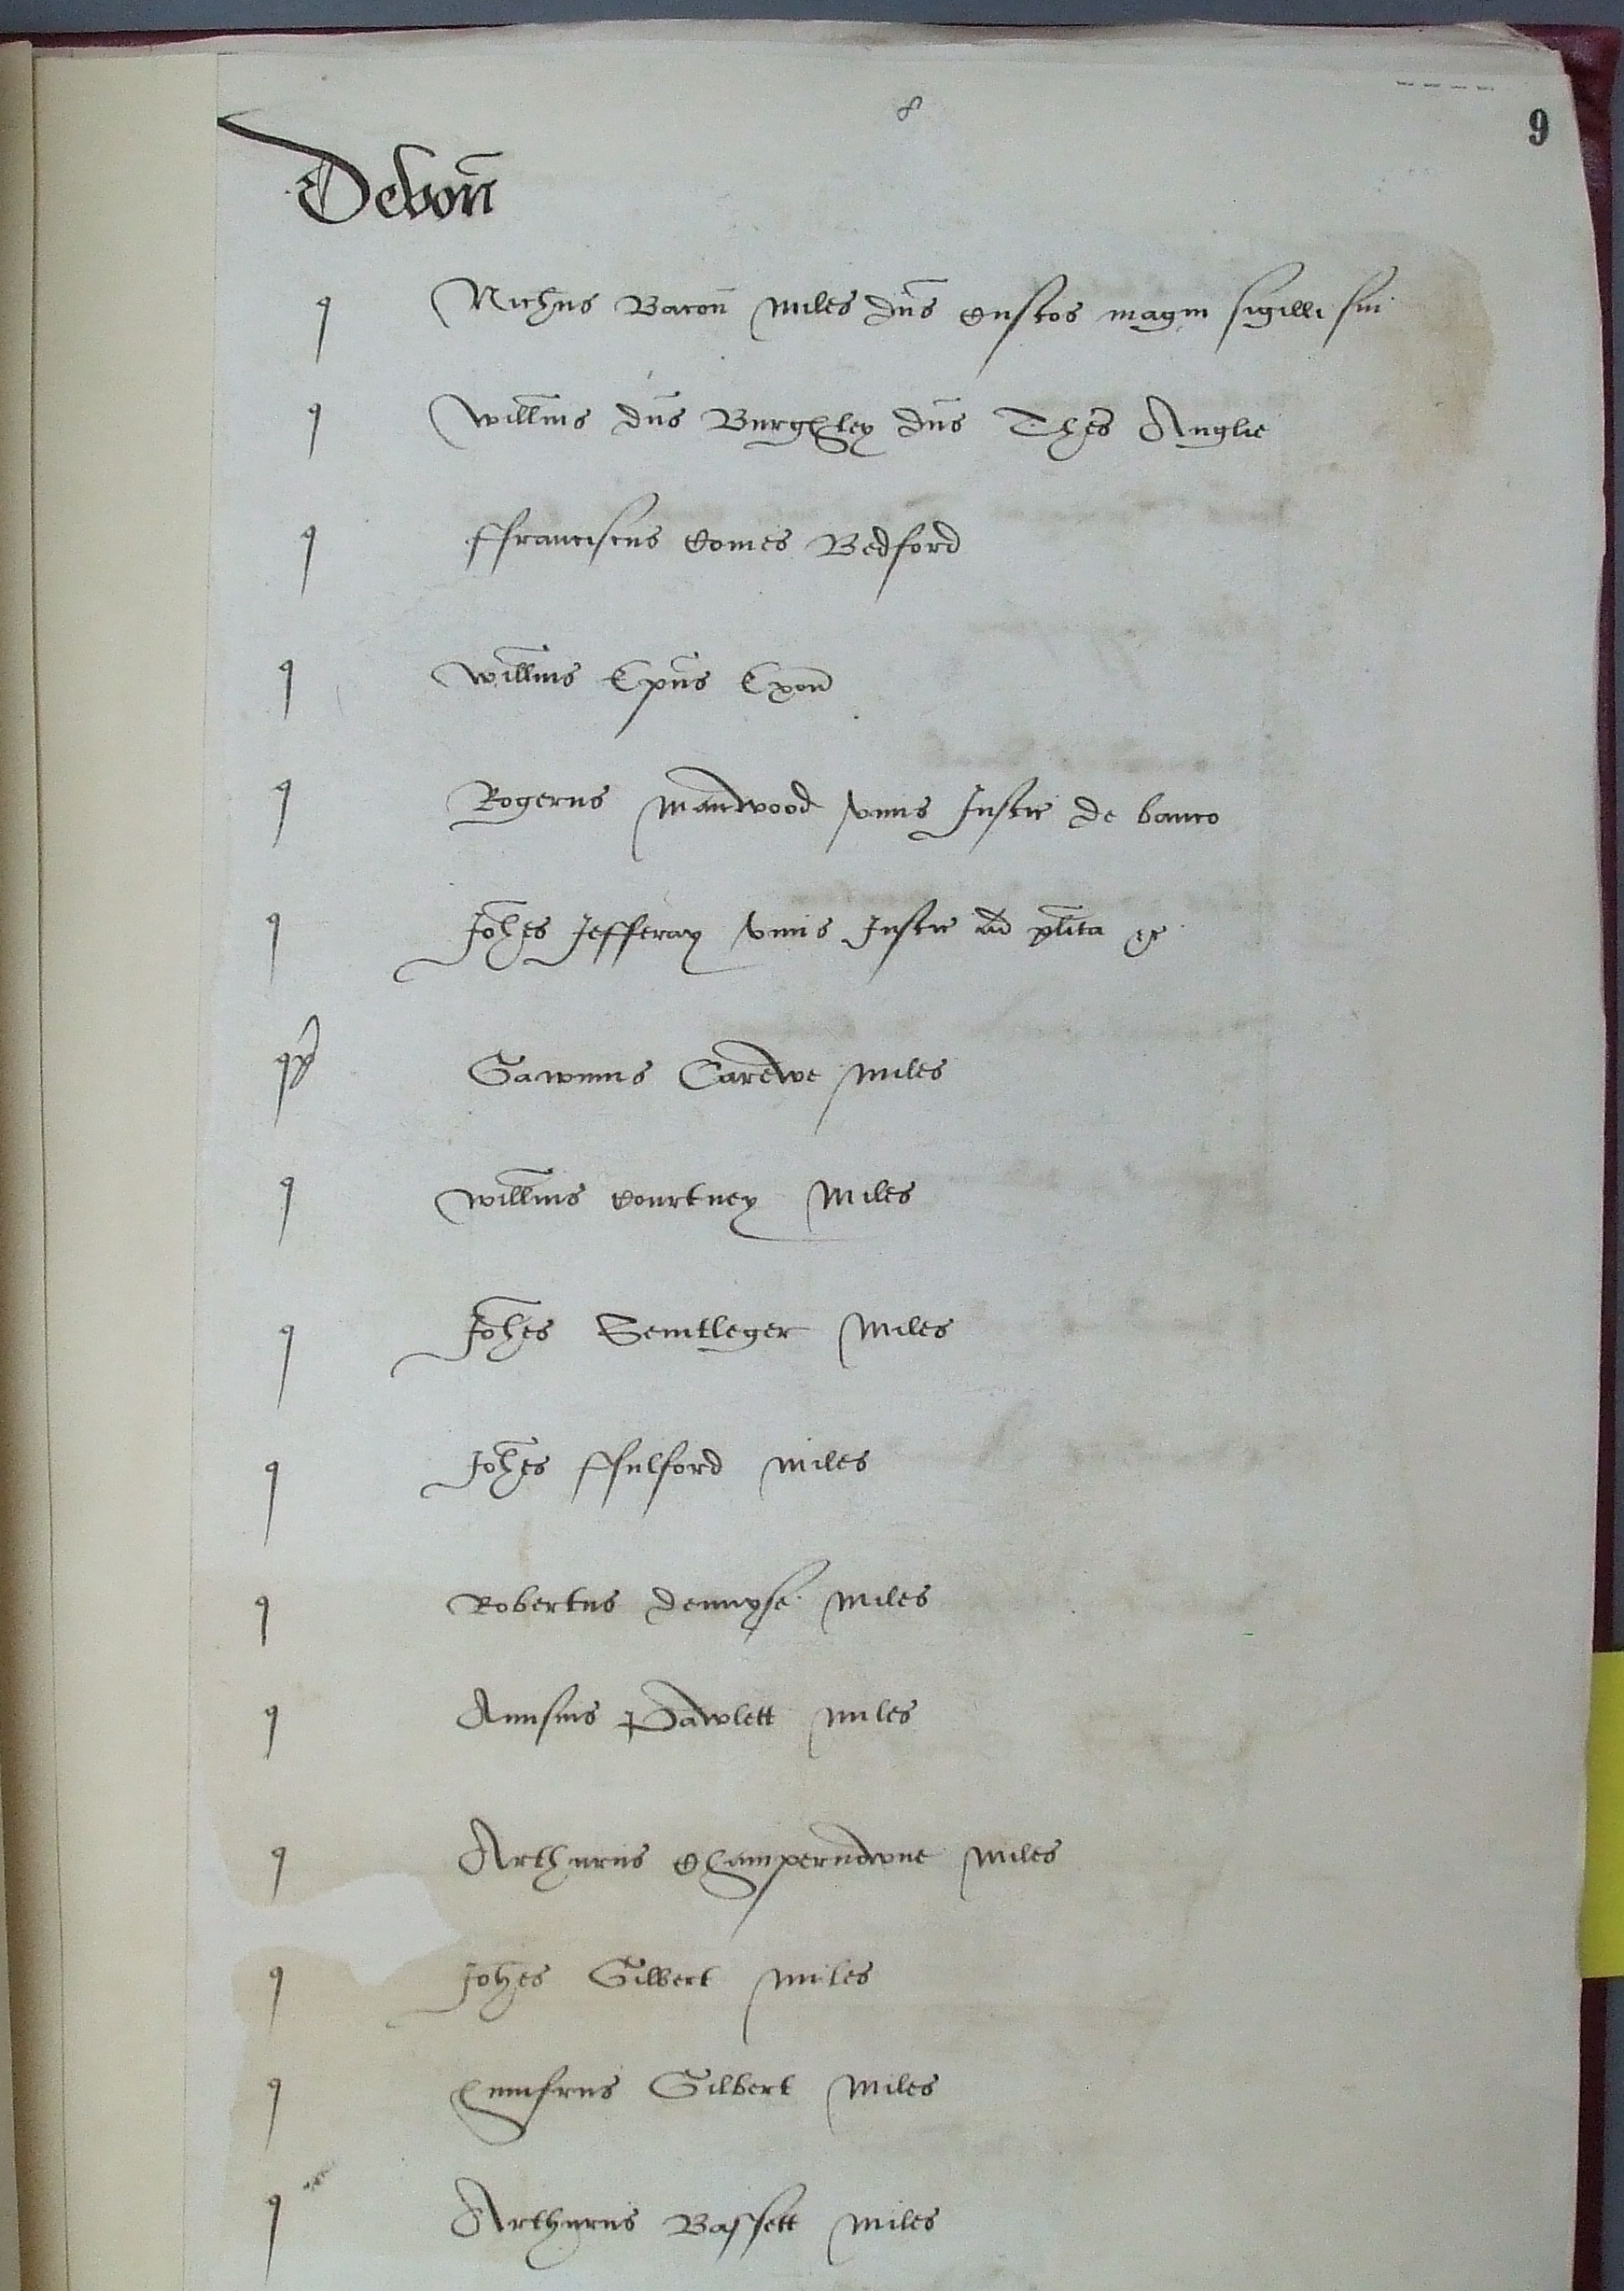 8
9
Devon̄
q Nich̄us Bacon̄ Miles dn̄s Custos magni sigilli sui
q Willm̄s dn̄s Burghley dn̄s Thes̄ Anglie
q ffranciscus Comes Bedford
q Willm̄s Ep̄us Exon̄
q Rogerus Manwood vnus Justic de banco
q Joh̄es Jefferay vnus Justic ad pl̄ita &c
q Gawinus Carewe Miles
q Willm̄s Courtney Miles
q Joh̄es Sentleger Miles
q Joh̄es ffulford Miles
q Robertus Dennyse Miles
q Amisius Pawlett Miles
q Arthurus Champernowne Miles
q Joh̄es Gilbert Miles
q Humfrus Gilbert Miles
q Arthurus Bassett Miles